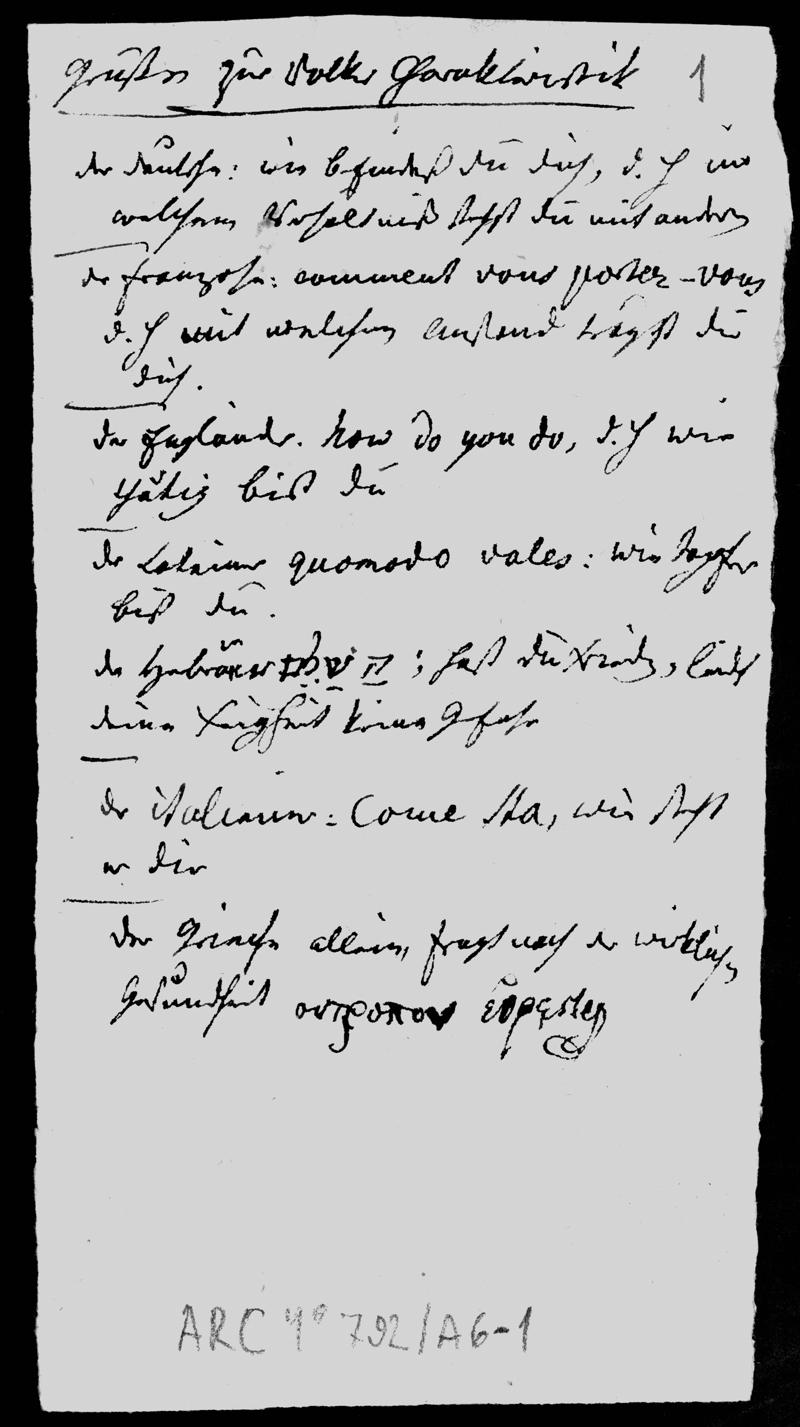 Grüße zur Volker Charakteristik 1
der deutsche: wie befindest dū dich, d. h in
welchem Verhältniß stehst dū mit andern
der franzose: comment vous portez-vous
d. h mit welchem Anstand trägst dū
dich.
der Engländer. how do you do, d. h wie
thätig bist dū
der Lateiner quomodo vales: wie tapfer
bist dū.
der Hebräer ; hast dū Friede, leidet
deine Feigheit keine Gefahr
der italiener: Come sta, wie steht
er dir
der Grieche allein, fragt nach der wirklichen
Gesundheit
ARC 4° 792/A6-1